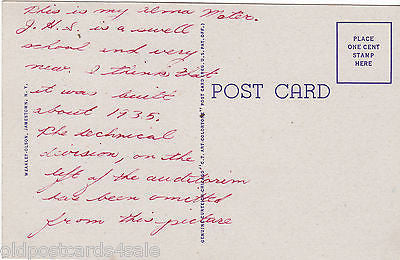 This is my Alma Mater.
J.H.S. is a swell
school and very
new. I think that
it was built
about 1935.
The technical
division, on the
left of the auditorium
has been omitted
from this picture
POST CARD
PLACE
ONE CENT
STAMP
HERE
WEARLEY-OLSON, JAMESTOWN, N.Y.
GENUINE CURTEICH-CHICAGO "C.T. ART-COLORTONE" POST CARD (REG. U.S. PAT. OFF.)
oldpostcards4sale